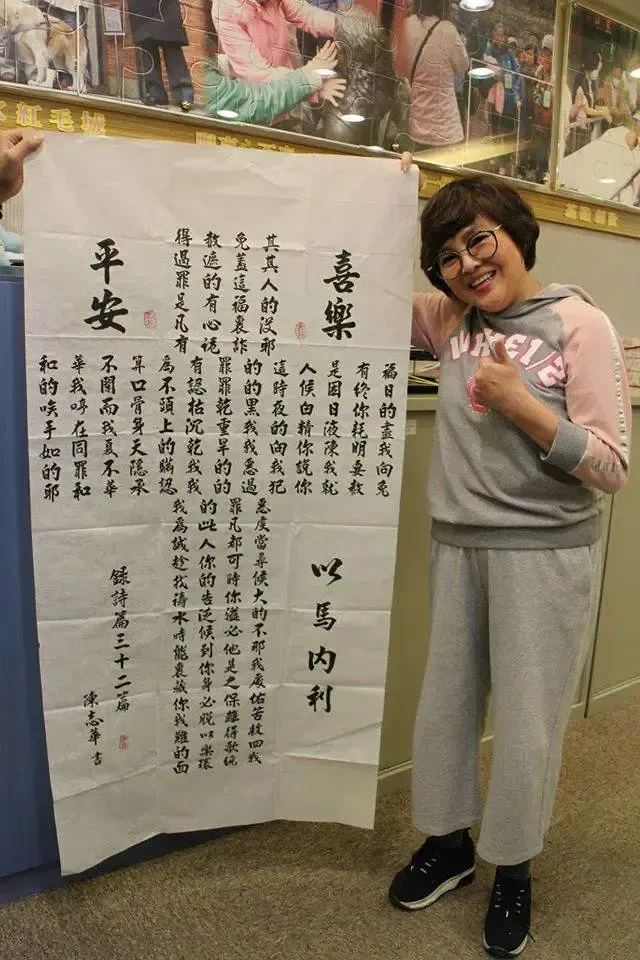 紅毛城
喜樂
平安
得赦免其
過遮蓋其
罪的這人
是有福的
凡心裏沒
有詭詐耶
和華不算為有罪的這人是有福
的我閉口不認罪的時候因終日
唉哼而骨頭枯乾黑夜白日你的
手在我身上沉重我的精液耗盡
如同夏天的乾旱我向你陳明我
的罪不隱瞞我的惡我說我要向
耶和華承認我的過犯你就赦免
我的罪惡
為此凡虔
誠人都當
趁你可尋
找的時候
禱告你大
水泛溢的
時候必不
能到他那
裏你是我
藏身之處
你必保佑
我脫離苦
難以得救
的樂歌四
面環繞我
以馬內利
錄詩篇三十二篇
陳志華書